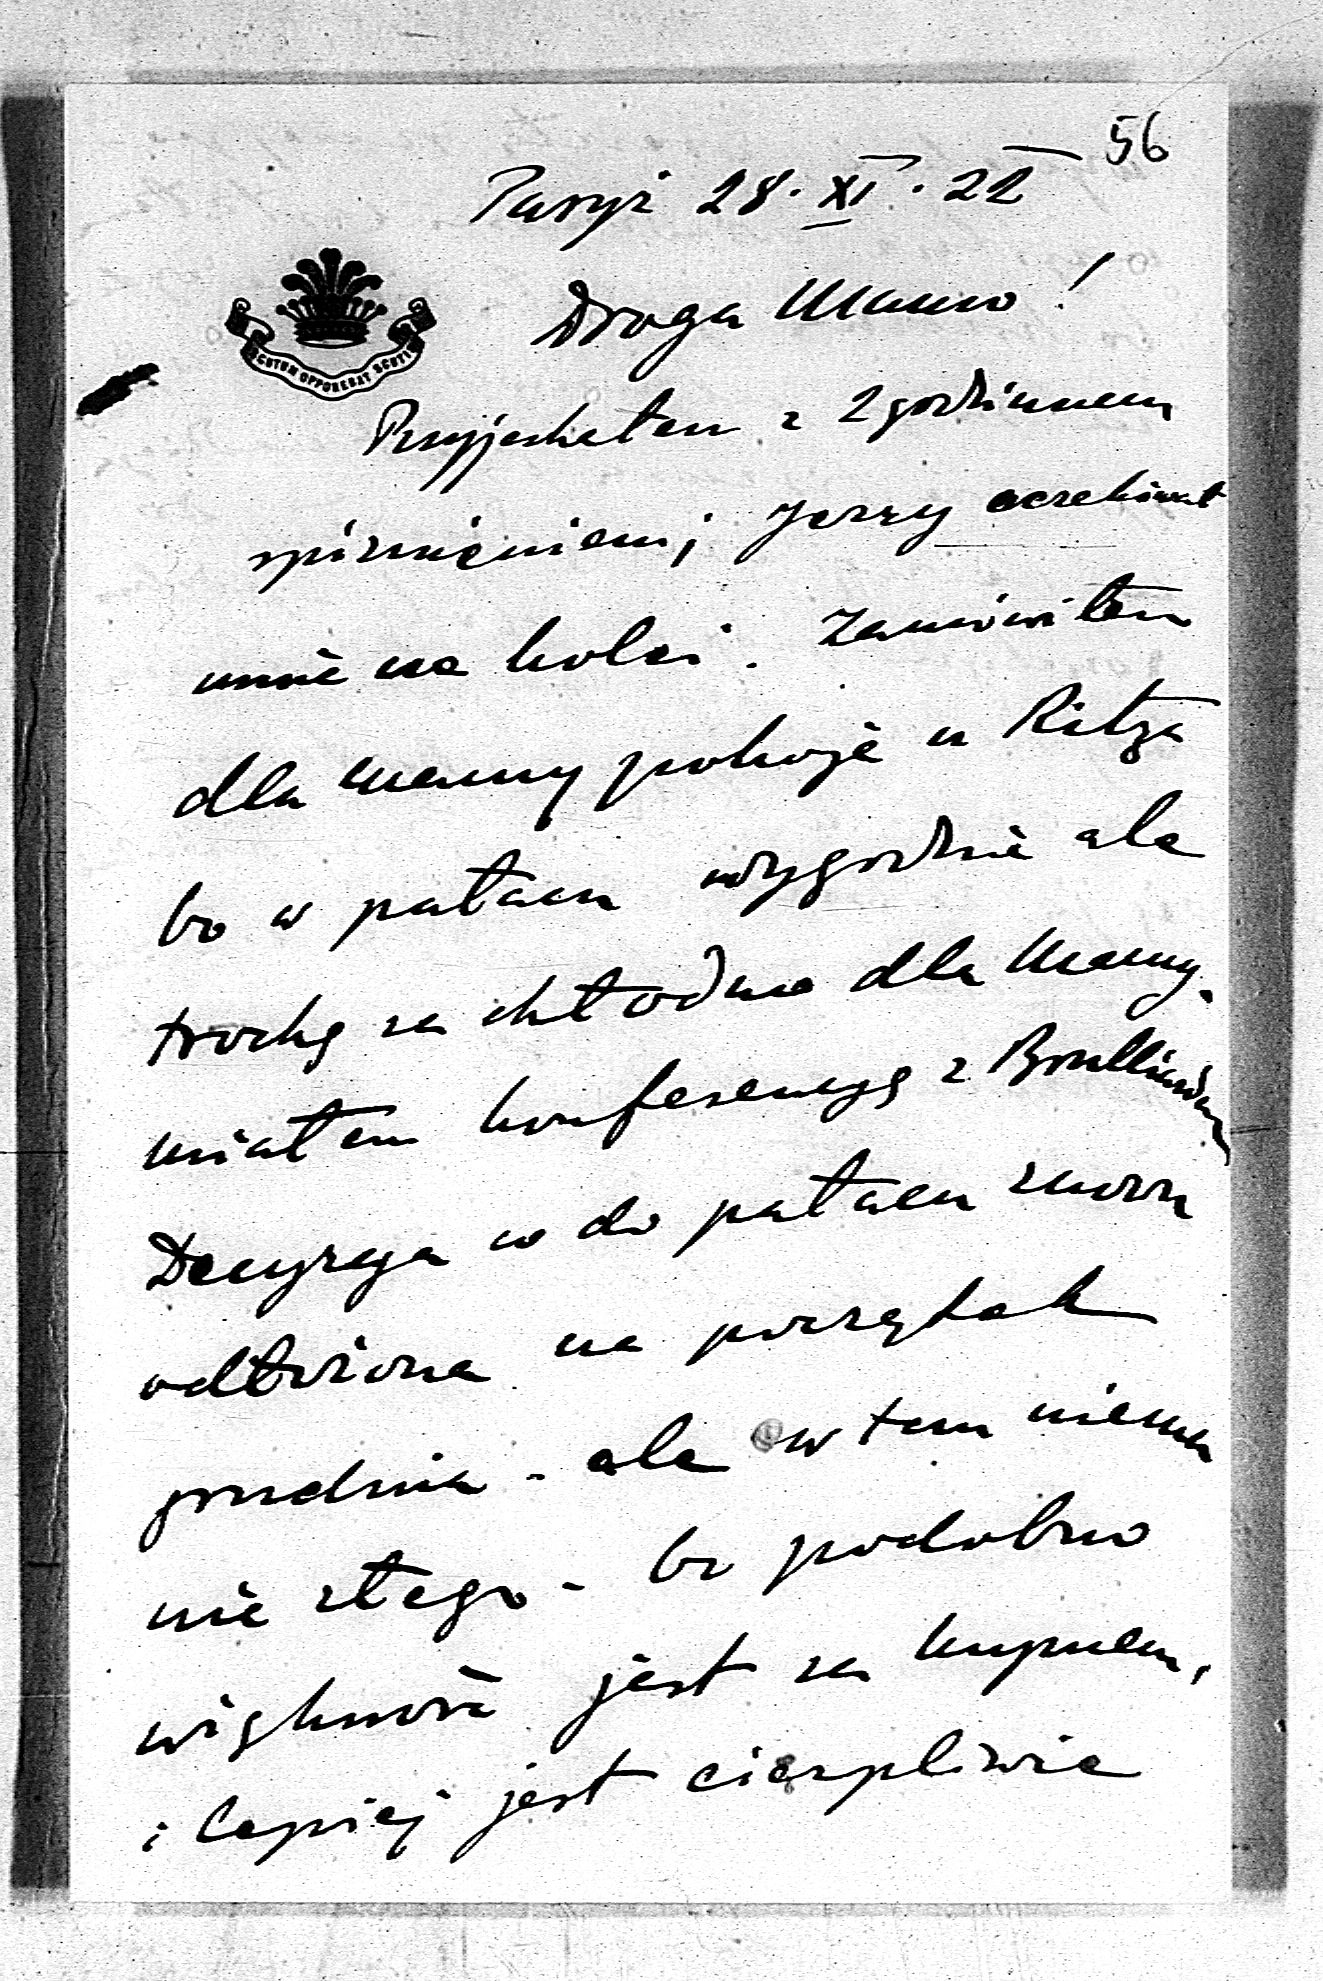 56
Paryż 28. XI. 22
Droga Mamo!
SCUTUM OPPONEBAT SCUTIS
Przyjechałem z 2 godzinnem
spóźnieniem; Jerzy oczekiwał
mnie na kolei. Zamówiłem
dla Mamy pokoje u Ritza
bo w pałacu wygodnie ale
trochę za chłodno dla Mamy.
Miałem konferencyę z
Decyzya co do pałacu znowu
odłożona na początek
grudnia - ale w tem niema
nic złego - bo podobno
większość jest za kupnem,
i lepiej jest cierpliwie